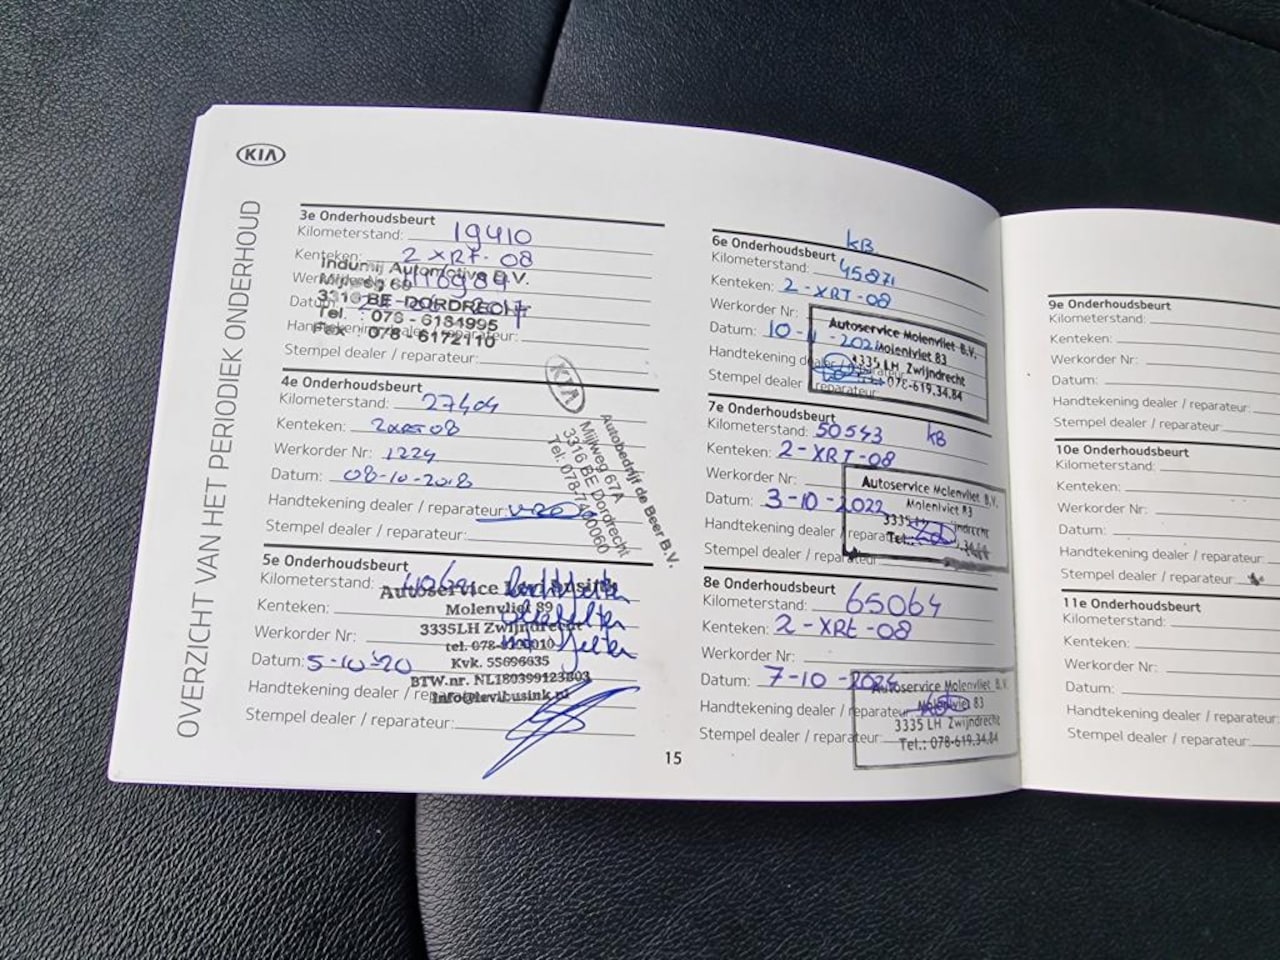 KIA
OVERZICHT VAN HET PERIODIEK ONDERHOUD
3e Onderhoudsbeurt
Kilometerstand: 19410
Kenteken: 2 XRT-08
Indumij Automotive B.V.
Mijlweg 69
3316 BE DORDRECHT
Datum:
Tel. : 078 - 6184995
Fax : 078 - 6172110
Stempel dealer / reparateur:
4e Onderhoudsbeurt
Kilometerstand: 27404
Kenteken: 2XRT08
Werkorder Nr: 1224
Datum: 08-10-2018
Handtekening dealer / reparateur:
Stempel dealer / reparateur:
KIA
Autobedrijf de Beer B.V.
Mijlweg 67A
3316 BE Dordrecht
Tel: 078-7400060
5e Onderhoudsbeurt
Kilometerstand:
Autoservice Levi Busink
Kenteken:
Molenvliet 89
Werkorder Nr:
3335LH Zwijndrecht
Kvk. 55696635
Datum: 5-10-'20
BTW.nr. NL180399123B03
Handtekening dealer /
Info@levibusink.nl
Stempel dealer / reparateur:
15
6e Onderhoudsbeurt kB
Kilometerstand: 45871
Kenteken: 2-XRT-08
Werkorder Nr:
Datum:
Handtekening dealer / reparateur:
Stempel dealer / reparateur:
Autoservice Molenvliet B.V.
Molenvliet 83
3335 LH Zwijndrecht
078-619.34.84
7e Onderhoudsbeurt
Kilometerstand: 50543 kB
Kenteken: 2-XRT-08
Werkorder Nr:
Datum: 3-10-2022
Handtekening dealer / reparateur:
Stempel dealer / reparateur:
Autoservice Molenvliet B.V.
Molenvliet 83
8e Onderhoudsbeurt
Kilometerstand: 65064
Kenteken: 2-XRT-08
Werkorder Nr:
Datum: 7-10-2024
Handtekening dealer / reparateur
Stempel dealer / reparateur:
Autoservice Molenvliet B.V.
Molenvliet 83
3335 LH Zwijndrecht
Tel.: 078-619.34.84
9e Onderhoudsbeurt
Kilometerstand:
Kenteken:
Werkorder Nr:
Datum:
Handtekening dealer / reparateur:
Stempel dealer / reparateur:
10e Onderhoudsbeurt
Kilometerstand:
Kenteken:
Werkorder Nr:
Datum:
Handtekening dealer / reparateur:
Stempel dealer / reparateur:
11e Onderhoudsbeurt
Kilometerstand:
Kenteken:
Werkorder Nr:
Datum:
Handtekening dealer / reparateur:
Stempel dealer / reparateur: